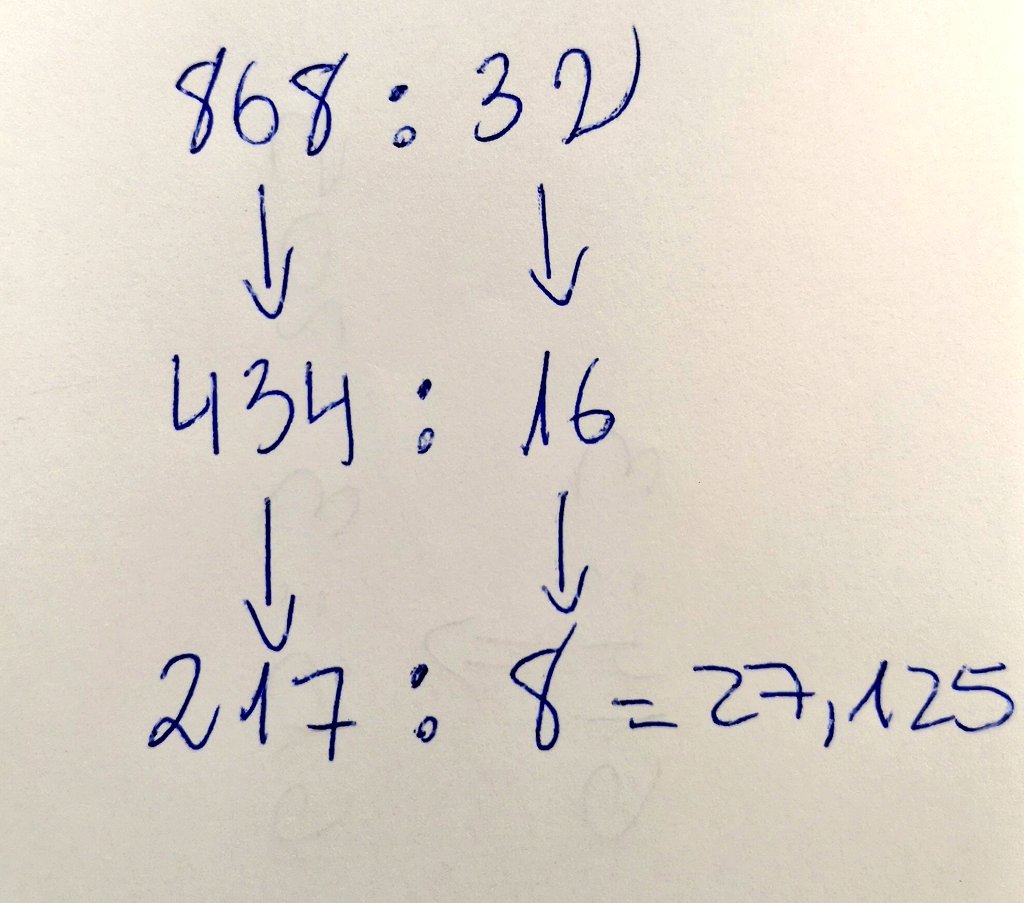 868 : 32
↓ ↓
434 : 16
↓ ↓
217 : 8 = 27,125